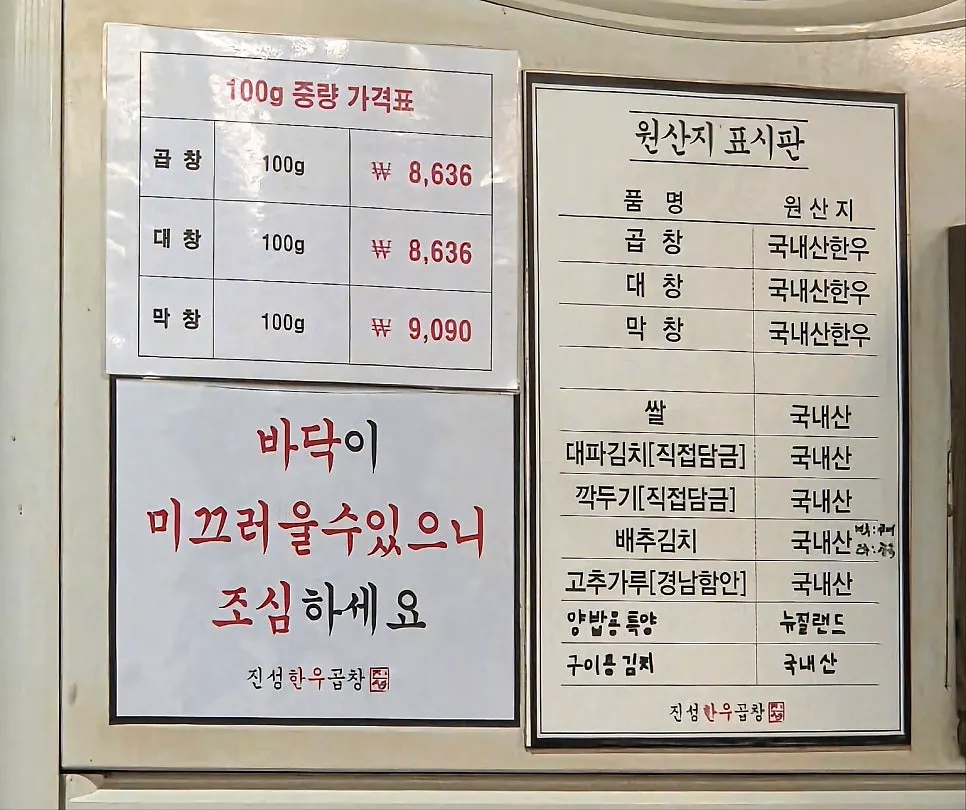 100g 중량 가격표
곱 창 100g ₩ 8,636
대 창 100g ₩ 8,636
막 창 100g ₩ 9,090
바닥이
미끄러울수있으니
조심하세요
진성한우곱창
원산지 표시판
품 명 원 산 지
곱 창 국내산한우
대 창 국내산한우
막 창 국내산한우
쌀 국내산
대파김치[직접담금] 국내산
깍두기[직접담금] 국내산
배추김치 국내산
고추가루[경남함안] 국내산
양밥용특양 뉴질랜드
구이용김치 국내산
진성한우곱창